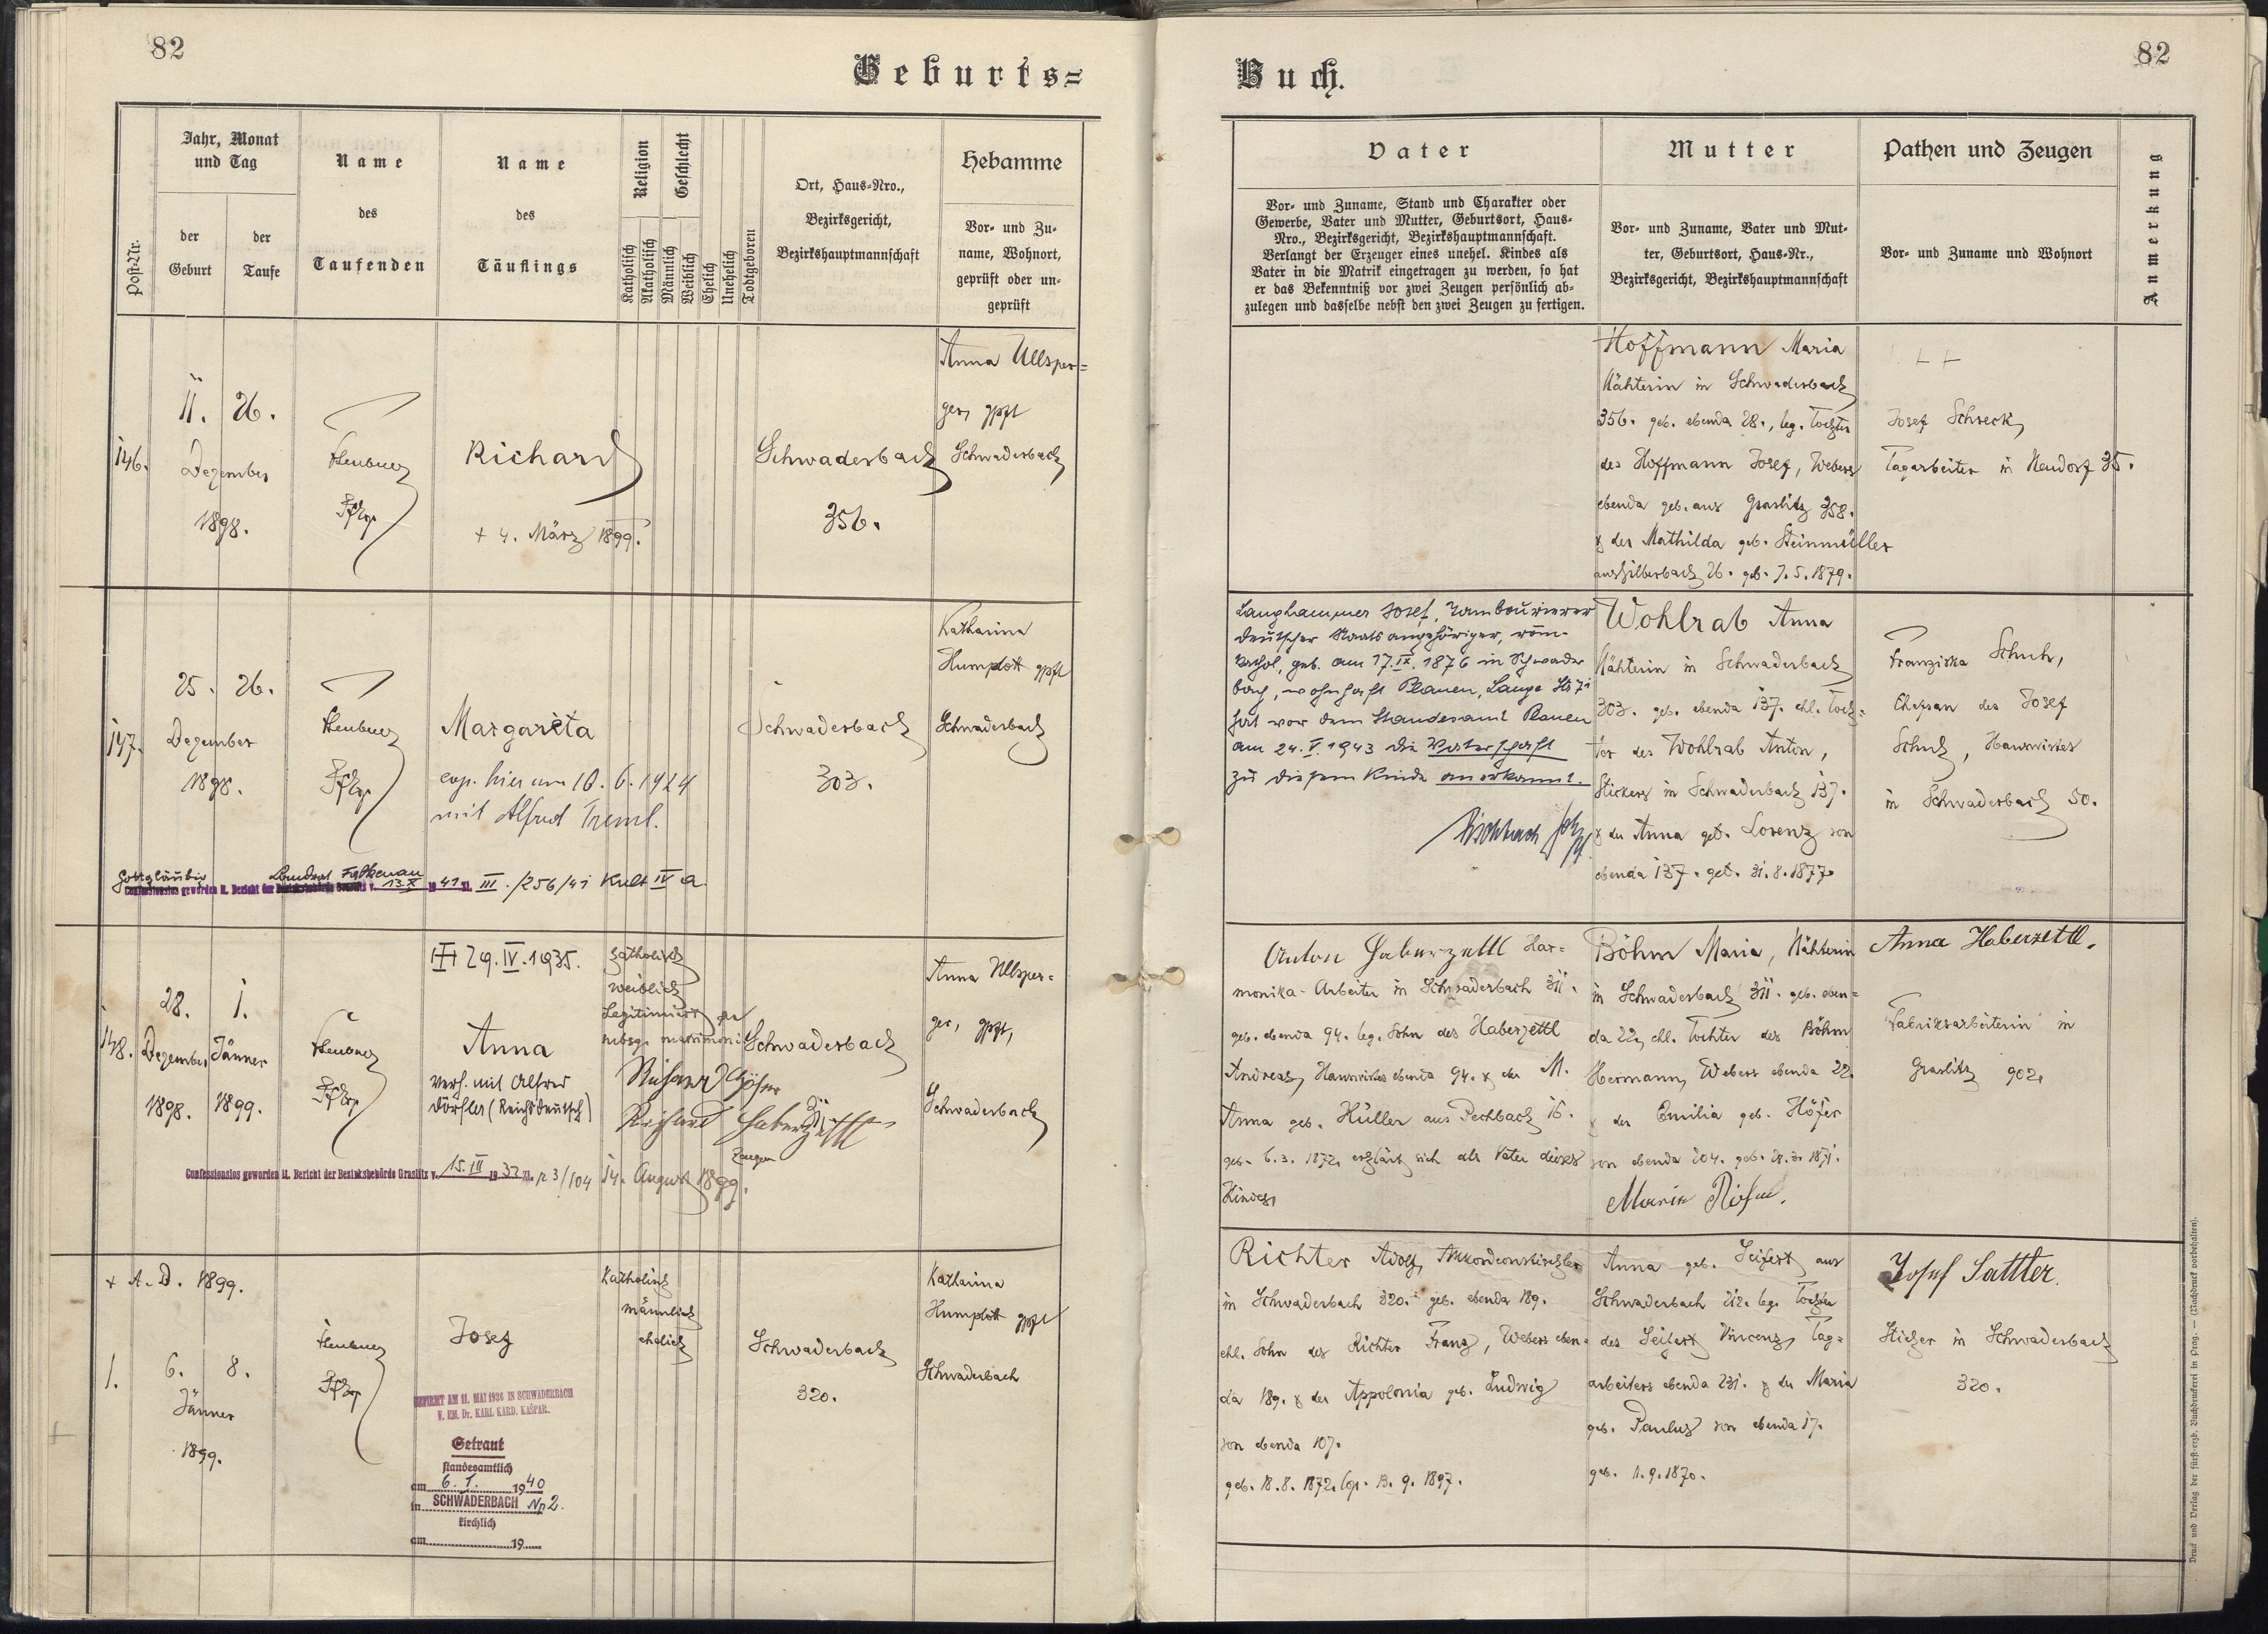 82
Geburts=
Post-Nr.
Jahr, Monat
und Tag
der
Geburt
der
Taufe
Name
des
Taufenden
Name
des
Täuflings
Religion
Geschlecht
Katholisch
Akatholisch
Männlich
Weiblich
Ehelich
Unehelich
Todtgeboren
Ort, Haus-Nro.,
Bezirksgericht,
Bezirkshauptmannschaft
Hebamme
Vor- und Zu-
name, Wohnort,
geprüft oder un-
geprüft
146.
11. 26.
Dezember
1898.
Richard
+ 4. März 1899.
Schwaderbach
356.
Anna Ullsper=
ger, gpft
Schwaderbach
147.
25. 26.
Dezember
1898.
Margareta
cop. hier am 10. 6. 1924
mit Alfred Treml.
Schwaderbach
303.
Katharina
Humplott gpft
Schwaderbach
Gottgläubig Landrat Falkenau
geworden lt. Bericht der v. 13.X 1941 Zl. III./256/41 Kult IV a.
148.
28. 1.
Dezember Jänner
1898. 1899.
29.IV.1935.
Anna
verh. mit Alfred
Dörfler (Reichsdeutsch)
Katholisch
weiblich
Legitimiert per
subsq. matrimoni
Schwaderbach
311
Richard
Richard Haberzettl
Zeugen
14. August 1899.
Anna Ullsper=
ger, gpft,
Schwaderbach
Confessionslos geworden lt. Bericht der Bezirksbehörde Graslitz v. 15.III 1932 Zl. 123/104
+ A. D. 1899.
1.
6. 8.
Jänner
1899.
Josef
Katholisch
männlich
ehelich
Schwaderbach
320.
Katharina
Humplott gpft
Schwaderbach
GEFIRMT AM 11. MAI 1936 IN SCHWADERBACH
V. EM. Dr. KARL KARD. KAŠPAR.
Getraut
standesamtlich
am 6. 1. 1940
in SCHWADERBACH Nr 2.
kirchlich
am 19
82
Buch.
Vater
Vor- und Zuname, Stand und Charakter oder
Gewerbe, Vater und Mutter, Geburtsort, Haus-
Nro., Bezirksgericht, Bezirkshauptmannschaft.
Verlangt der Erzeuger eines unehel. Kindes als
Vater in die Matrik eingetragen zu werden, so hat
er das Bekenntniß vor zwei Zeugen persönlich ab-
zulegen und dasselbe nebst den zwei Zeugen zu fertigen.
Mutter
Vor- und Zuname, Vater und Mut-
ter, Geburtsort, Haus-Nr.,
Bezirksgericht, Bezirkshauptmannschaft
Pathen und Zeugen
Vor- und Zuname und Wohnort
Anmerkung
Hoffmann Maria
Nähterin in Schwaderbach
356. geb. ebenda 28., leg. Tochter
des Hoffmann Josef, Webers
ebenda geb. aus Graslitz 358.
& der Mathilda geb. Steinmüller
aus Silberbach 26. geb. 7. 5. 1879.
+ +
Josef Schreck,
Tagarbeiter in Neudorf 35.
Langhammer Josef, Tambourierer
deutscher Staatsangehöriger, röm-
kathol, geb. am 17.IX.1876 in Schwader
bach, wohnhaft Plauen, Lange Str 71
hat vor dem Standesamt Plauen
am 24.V.1943 die Vaterschaft
zu diesem Kinde anerkannt.
Wohlrab Anna
Nähterin in Schwaderbach
303. geb. ebenda 137. ehl. Toch=
ter des Wohlrab Anton,
Stickers in Schwaderbach 137.
& der Anna geb. Lorenz von
ebenda 137. geb. 31. 8. 1877.
Franziska Schuh,
Ehefrau des Josef
Schuh, Hauswirtes
in Schwaderbach 50.
Anton Haberzettl Har=
monika-Arbeiter in Schwaderbach 311.
geb. ebenda 94. leg. Sohn des Haberzettl
Andreas, Hauswirtes ebenda 94. & der M.
Anna geb. Hüller aus Pechbach 16.
geb. 6. 3. 1872, erklärt sich als Vater dieses
Kindes,
Böhm Maria, Nähterin
in Schwaderbach 311. geb. eben=
da 22, ehl. Tochter des Böhm
Hermann, Webers ebenda 22.
& der Emilia geb. Höfer
von ebenda 204. geb. 28. 3. 1871.
Maria
Anna Haberzettl.
Fabriksarbeiterin in
Graslitz 902.
Richter Adolf, Akkordeonstischler
in Schwaderbach 320. geb. ebenda 189.
ehl. Sohn des Richter Franz, Webers eben=
da 189. & der Appolonia geb. Ludwig
von ebenda 107.
geb. 18. 8. 1872. Cop. 13. 9. 1897.
Anna geb. Seifert aus
Schwaderbach 212. leg. Tochter
des Seifert Vincenz, Tag=
arbeiters ebenda 231. & der Maria
geb. Paulus von ebenda 17.
geb. 1. 9. 1870.
Josef Sattler.
Sticker in Schwaderbach
320.
Druck und Verlag der fürst-erzb. Buchdruckerei in Prag. — (Nachdruck vorbehalten).